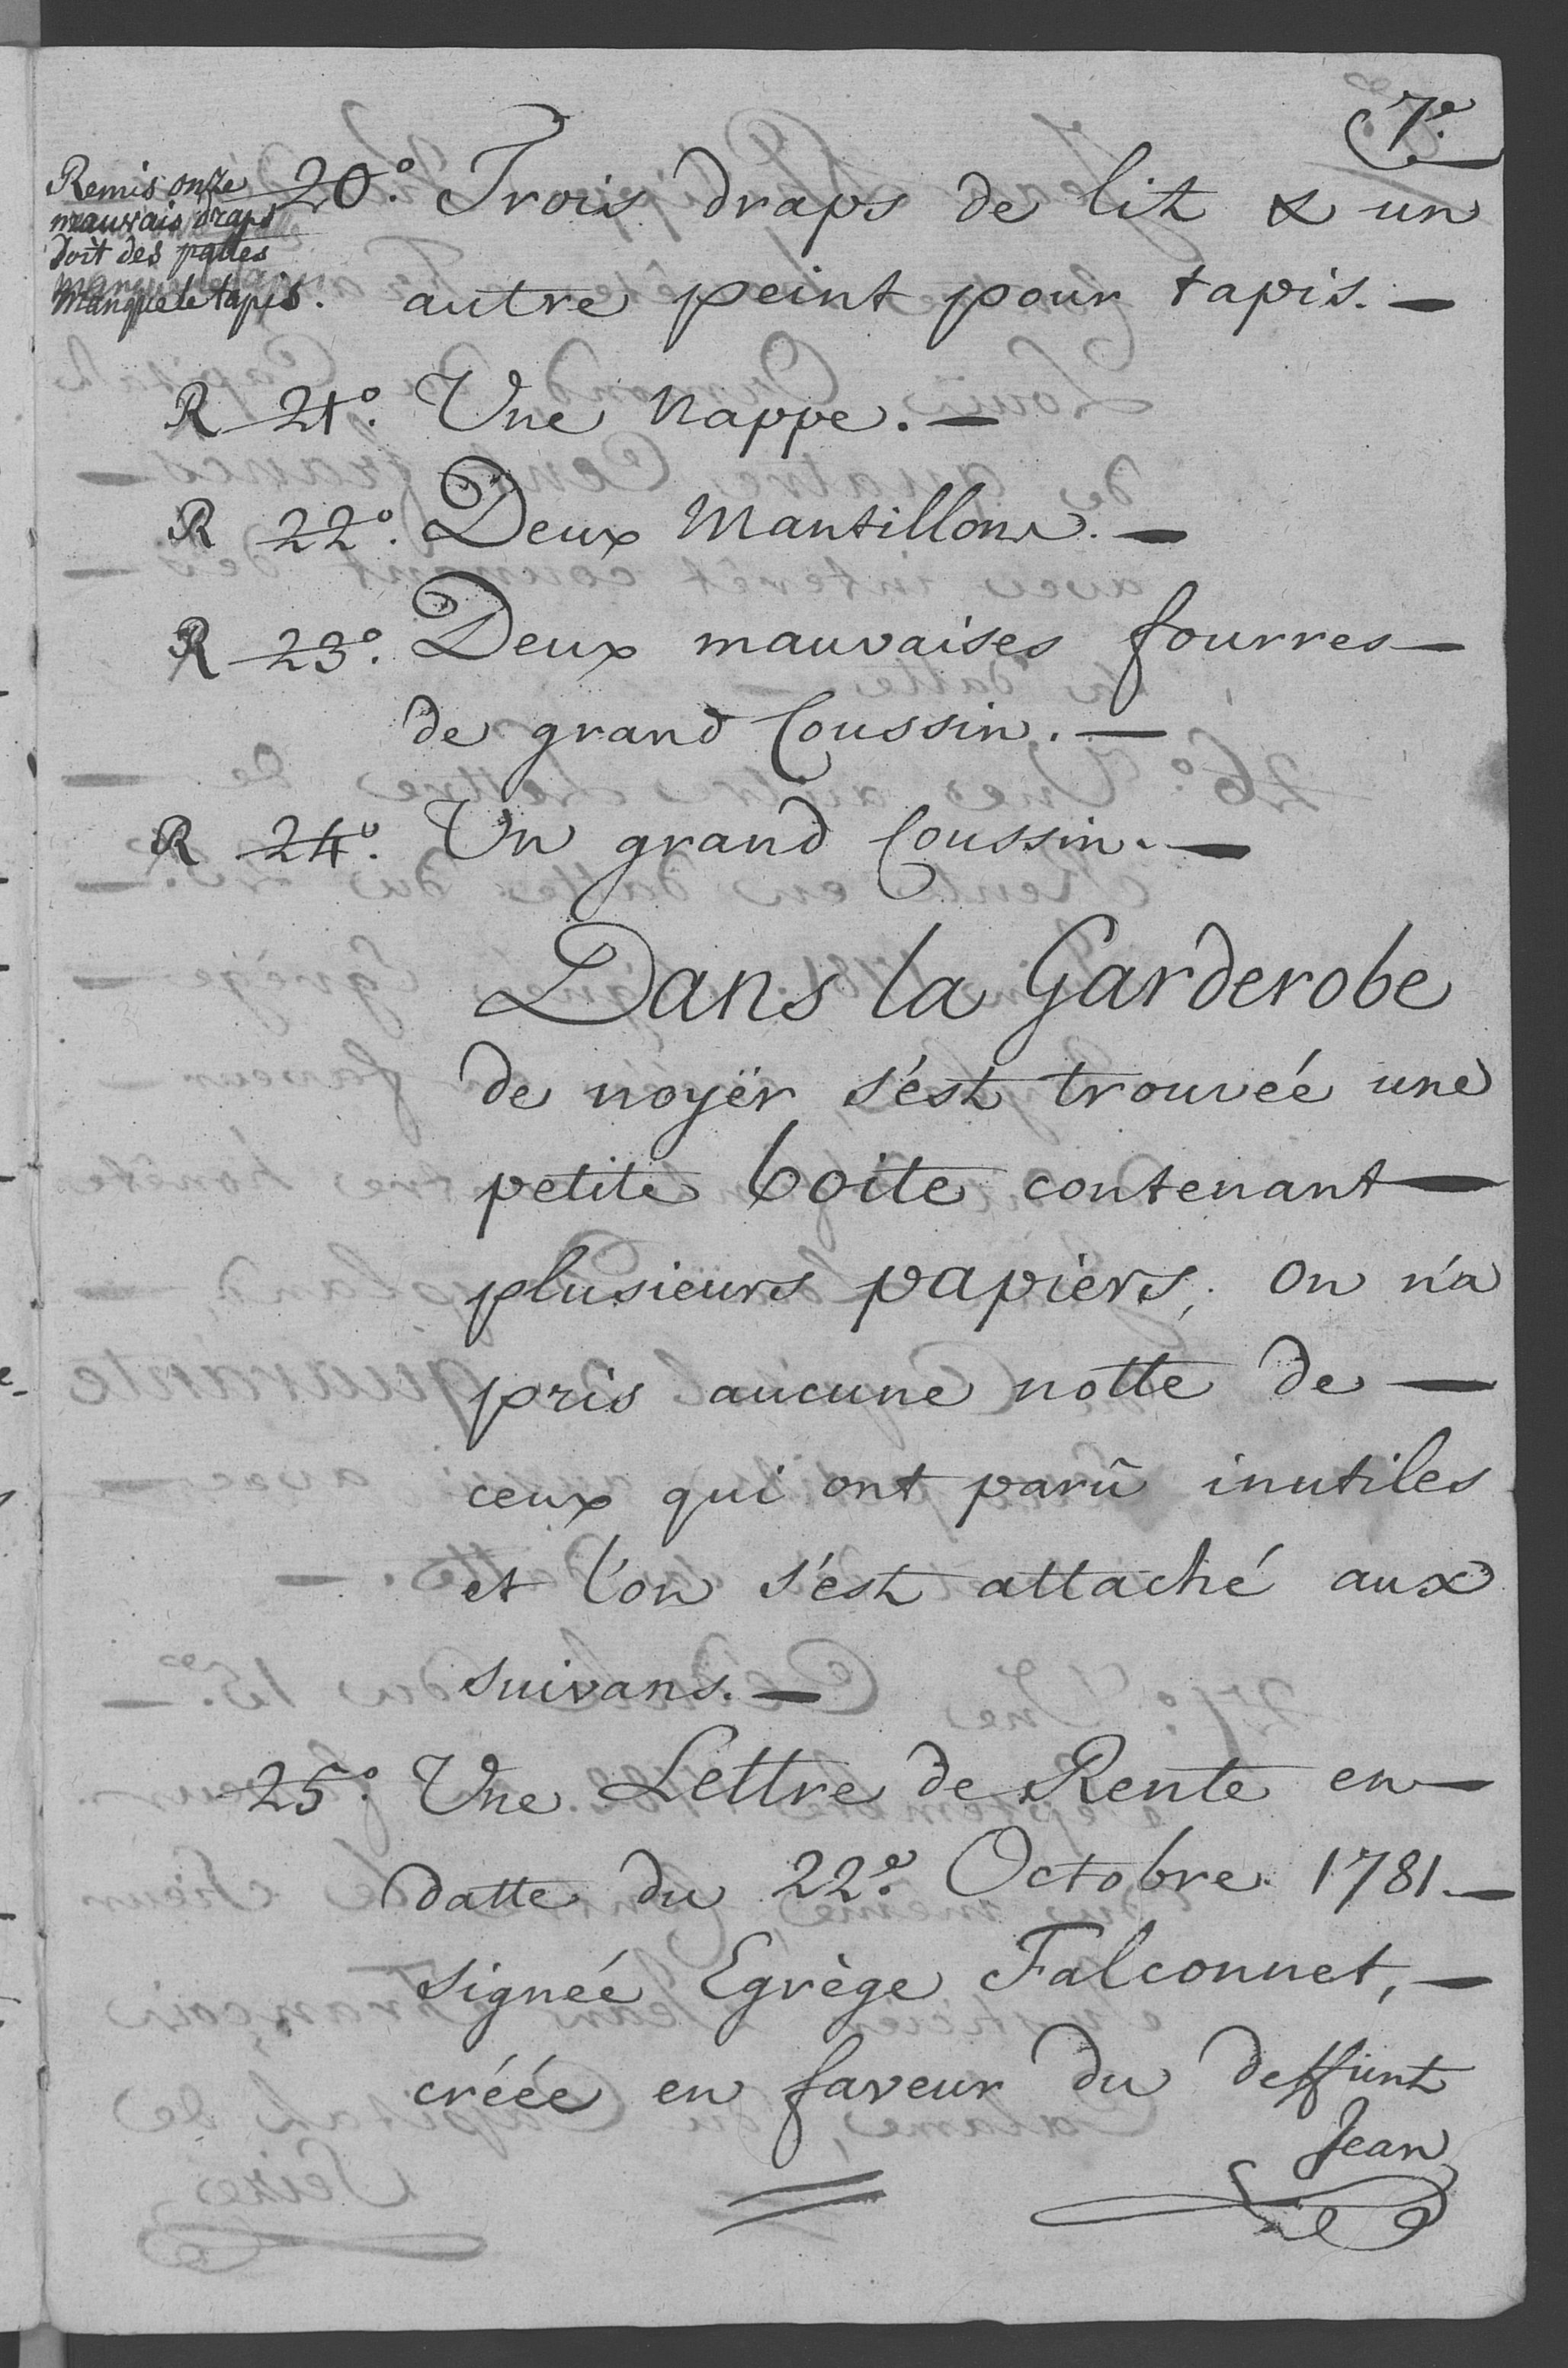 7.e
Remis onze
mauvais draps
doit des pattes
manque le tapis.
20.o Trois draps de lit & un
autre peint pour tapis. —
R 21.o Une Nappe. —
R 22.o Deux Mantillons. —
R 23.o Deux mauvaises fourres —
de grand Coussin. —
R 24.o Un grand Coussin. —
Dans la Garderobe
de noyër s'est trouvéé une
petite boite contenant —
plusieurs papiers, on n'a
pris aucune notte de —
ceux qui ont parû inutiles
et l'on s'est attaché aux
suivans. —
25.o Une Lettre de Rente en —
datte du 22.e Octobre 1781 —
signéé Egrège Falconnet, —
créée en faveur du deffunt
Jean